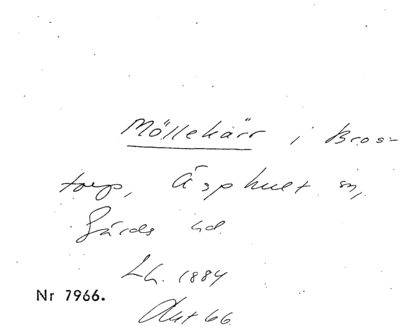 Möllekärr i Bros-
torp, Äsphult sn,
Gärds hd.
Lh. 1884
Nr 7966.
Akt 66